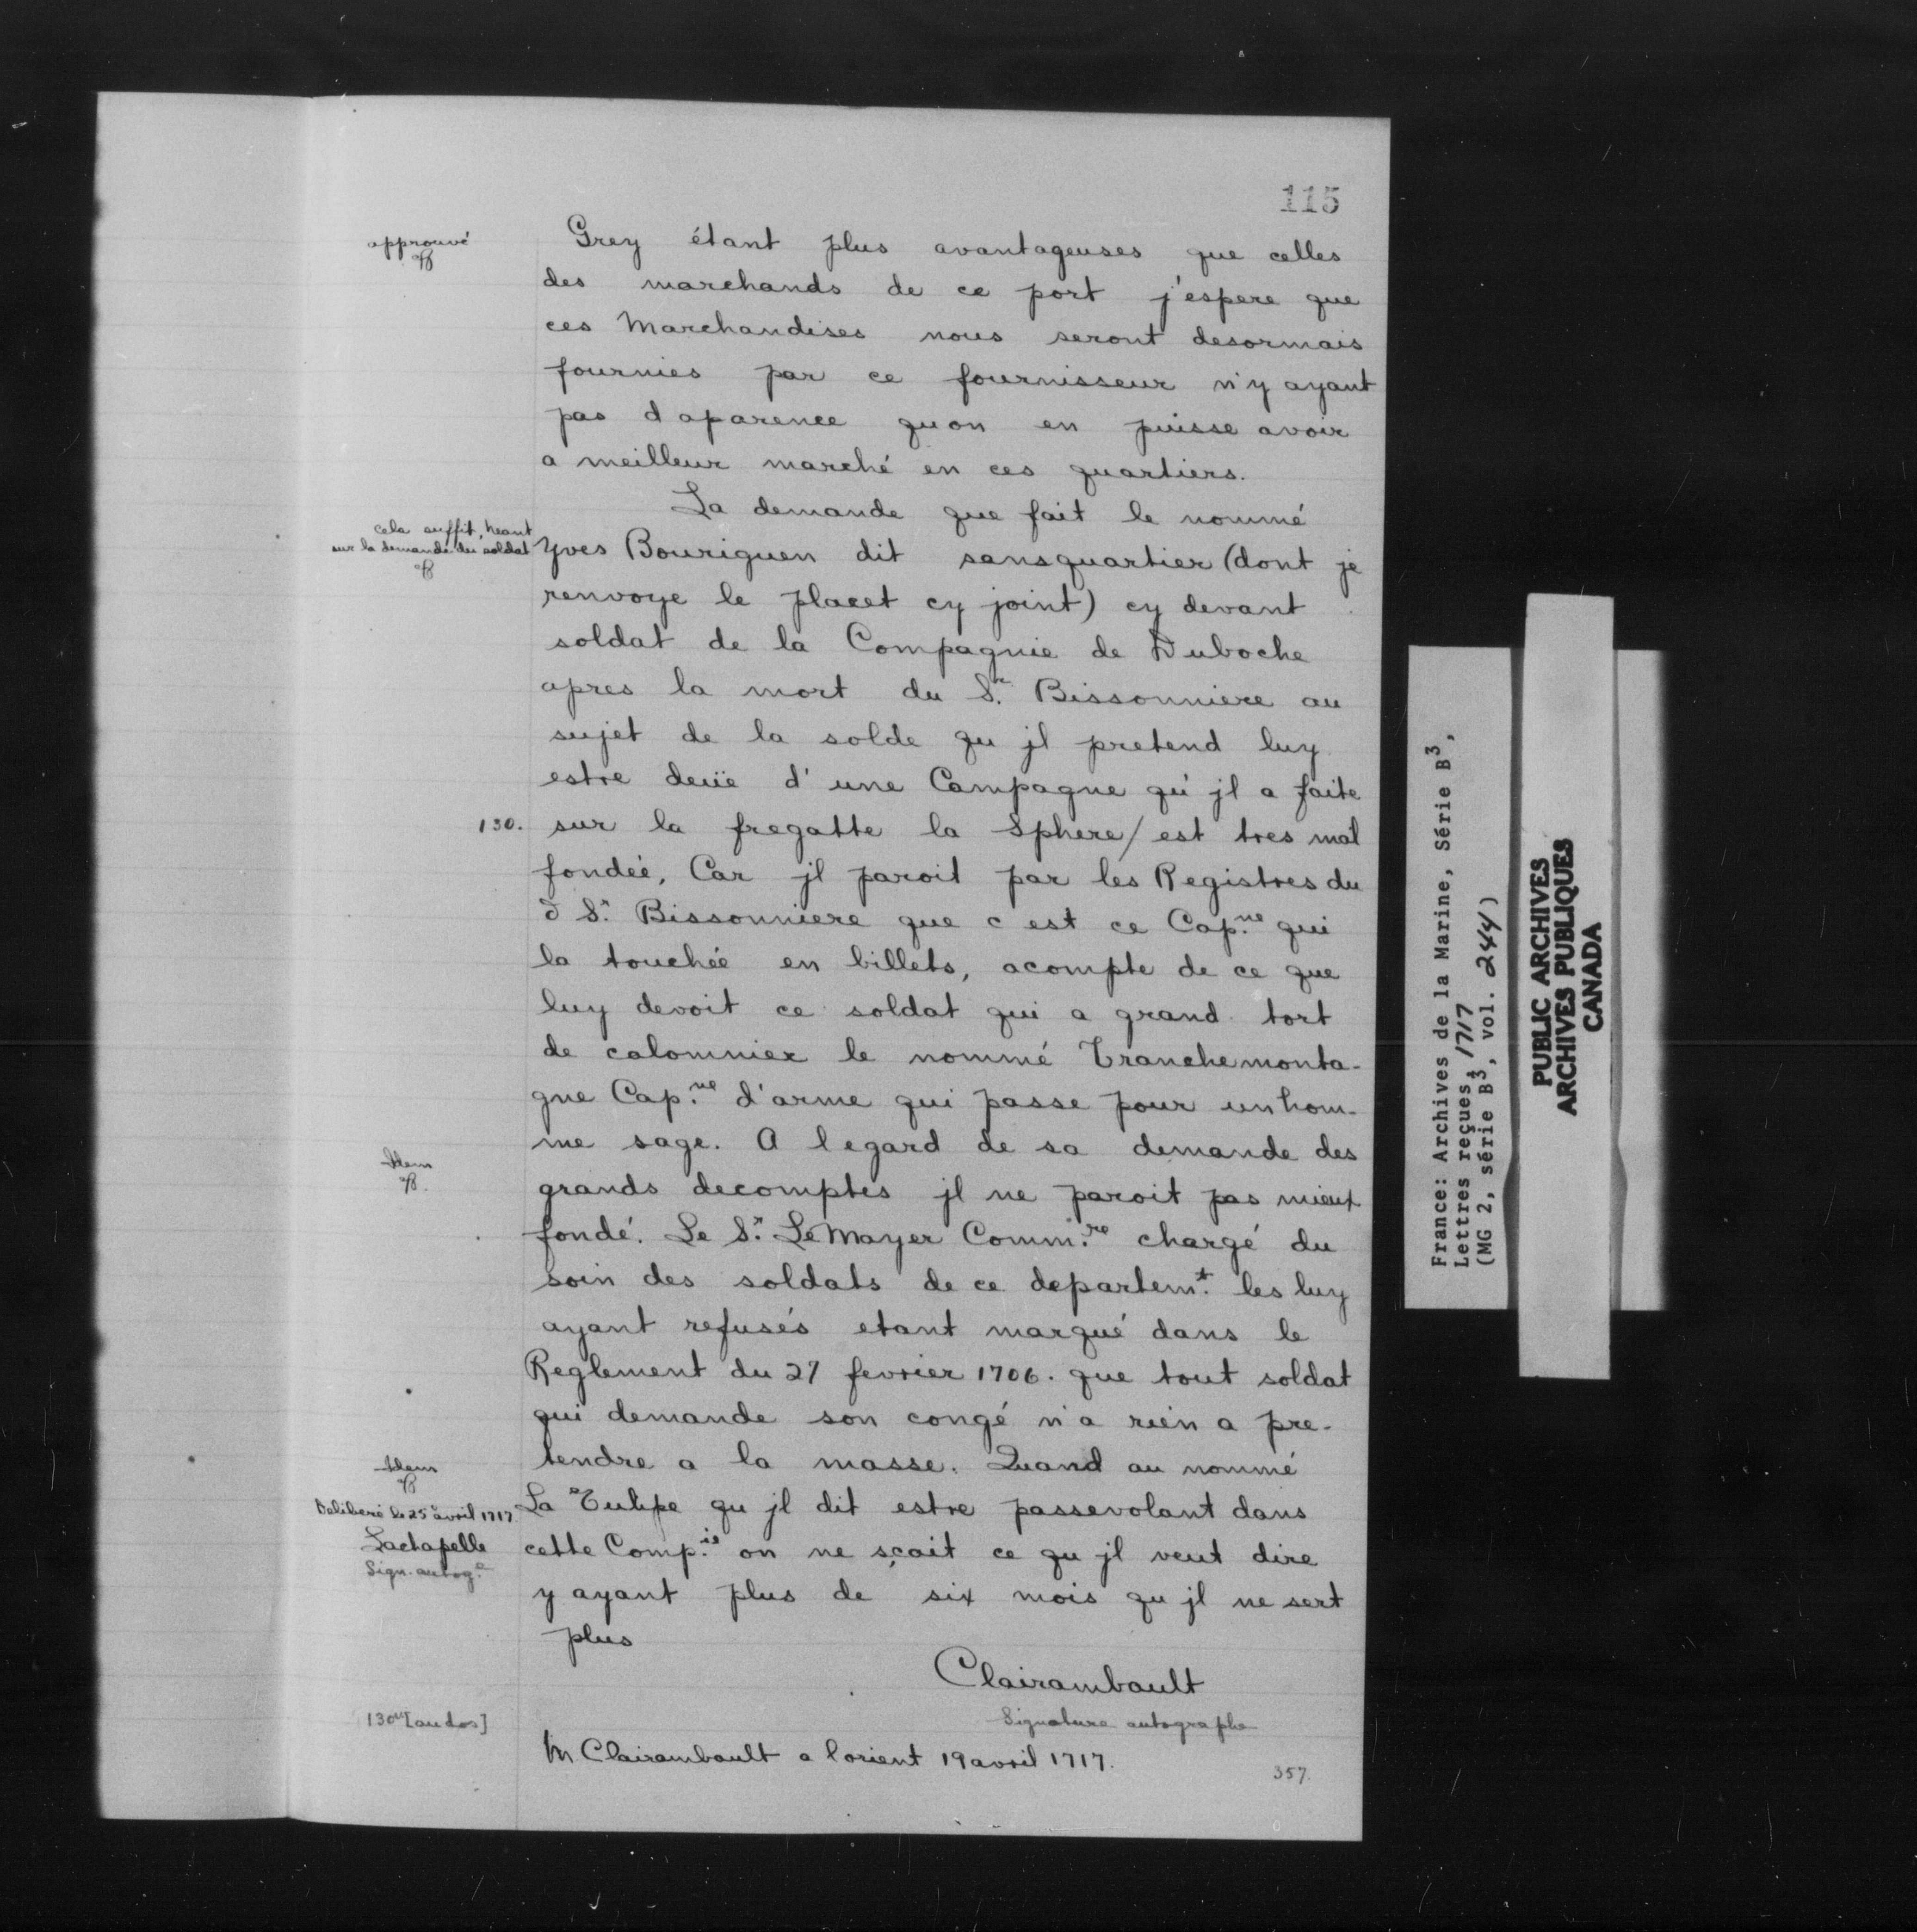 115
approuvé
Grey étant plus avantageuses que celles
des marchands de ce port j'espere que
ces Marchandises nous seront desormais
fournies par ce fournisseur n'y ayant
pas d aparence quon en puisse avoir
a meilleur marché en ces quartiers.
La demande que fait le nommé
cela suffit, neant
sur la demande du soldat
Yves Bouriguen dit sansquartier (dont je
renvoye le placet cy joint) cy devant
soldat de la Compagnie de Duboche
apres la mort du Sr. Bissonniere au
sujet de la solde qu jl pretend luy
estre deüe d'une Campagne qu'jl a faite
130. sur la fregatte la Sphere/ est tres mal
fondée, Car jl paroit par les Registres du
d Sr. Bissonniere que c est ce Cap.ne qui
la touchée en billets, acompte de ce que
luy devoit ce soldat qui a grand tort
de calomnier le nommé Tranchemonta-
gne Cap.ne d'arme qui passe pour un hom-
me sage. A legard de sa demande des
Idem
grands decomptes jl ne paroit pas mieux
fondé. Le Sr. LeMayer Comm.re chargé du
soin des soldats de ce departem.t les luy
ayant refusés etant marqué dans le
Reglement du 27 fevrier 1706. que tout soldat
qui demande son congé n'a rien a pre-
tendre a la masse. Quand au nommé
Idem
La Tulipe qu jl dit estre passevolant dans
Deliberé le 25 avril 1717
cette Comp.ie on ne sçait ce qu jl veut dire
Lachapelle
Sign. autog.e
y ayant plus de six mois qu jl ne sert
plus
Clairambault
Signature autographe
130vo [au dos]
M Clairambault a lorient 19 avril 1717.
357.
France: Archives de la Marine, Série B3,
Lettres reçues, 1717
(MG 2, série B3, vol. 244)
PUBLIC ARCHIVES
ARCHIVES PUBLIQUES
CANADA